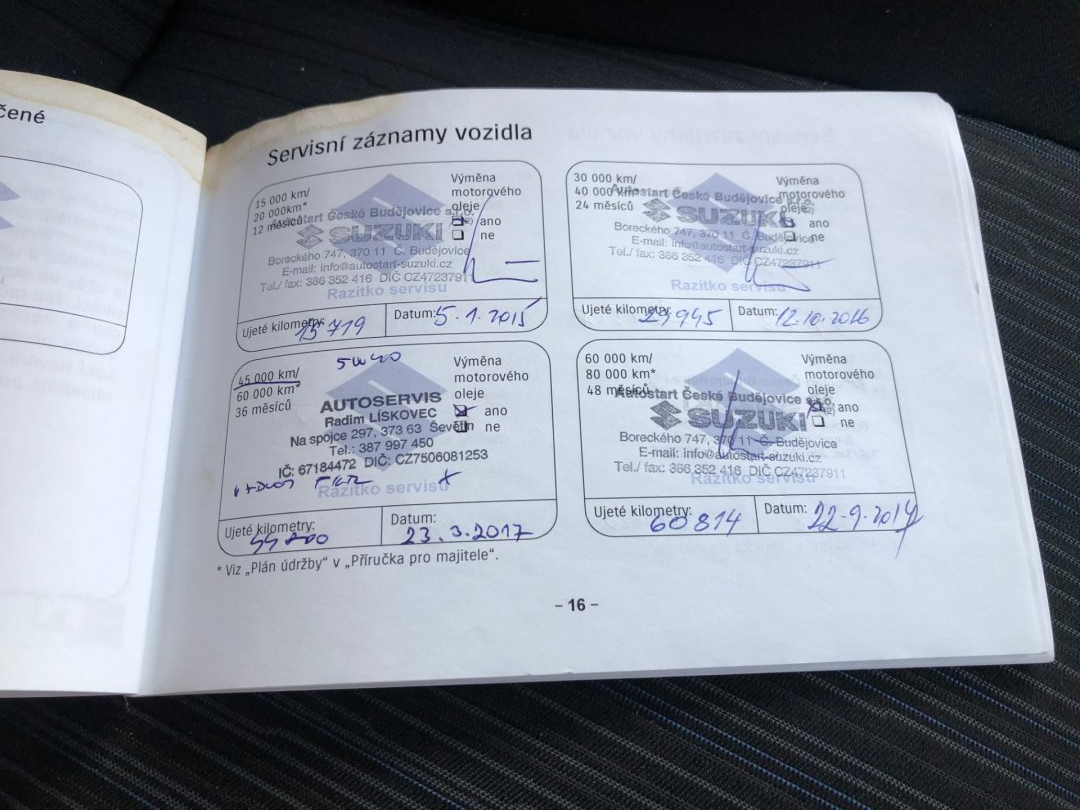 čené
Servisní záznamy vozidla
15 000 km/
20 000km*
12 měsíců
Výměna
motorového
oleje
ano
ne
Autostart České Budějovice s.r.o.
SUZUKI
Boreckého 747, 370 11 Č. Budějovice
E-mail: info@autostart-suzuki.cz
Tel./ fax: 386 352 416 DIČ CZ47237911
Razítko servisu
Ujeté kilometry:
15 719
Datum:
5.1.2015
30 000 km/
40 000 km*
24 měsíců
Výměna
motorového
oleje
ano
ne
Autostart České Budějovice s.r.o.
SUZUKI
Boreckého 747, 370 11 Č. Budějovice
E-mail: info@autostart-suzuki.cz
Tel./ fax: 386 352 416 DIČ CZ47237911
Razítko servisu
Ujeté kilometry:
Datum:
12.10.2016
5W40
45 000 km/
60 000 km*
36 měsíců
Výměna
motorového
oleje
ano
ne
AUTOSERVIS
Radim LÍSKOVEC
Na spojce 297, 373 63 Ševětín
Tel.: 387 997 450
IČ: 67184472 DIČ: CZ7506081253
Razítko servisu
Ujeté kilometry:
Datum:
23.3.2017
60 000 km/
80 000 km*
48 měsíců
Výměna
motorového
oleje
ano
ne
Autostart České Budějovice s.r.o.
SUZUKI
Boreckého 747, 370 11 Č. Budějovice
E-mail: info@autostart-suzuki.cz
Tel./ fax: 386 352 416 DIČ CZ47237911
Razítko servisu
Ujeté kilometry:
60 814
Datum:
* Viz „Plán údržby“ v „Příručka pro majitele“.
– 16 –